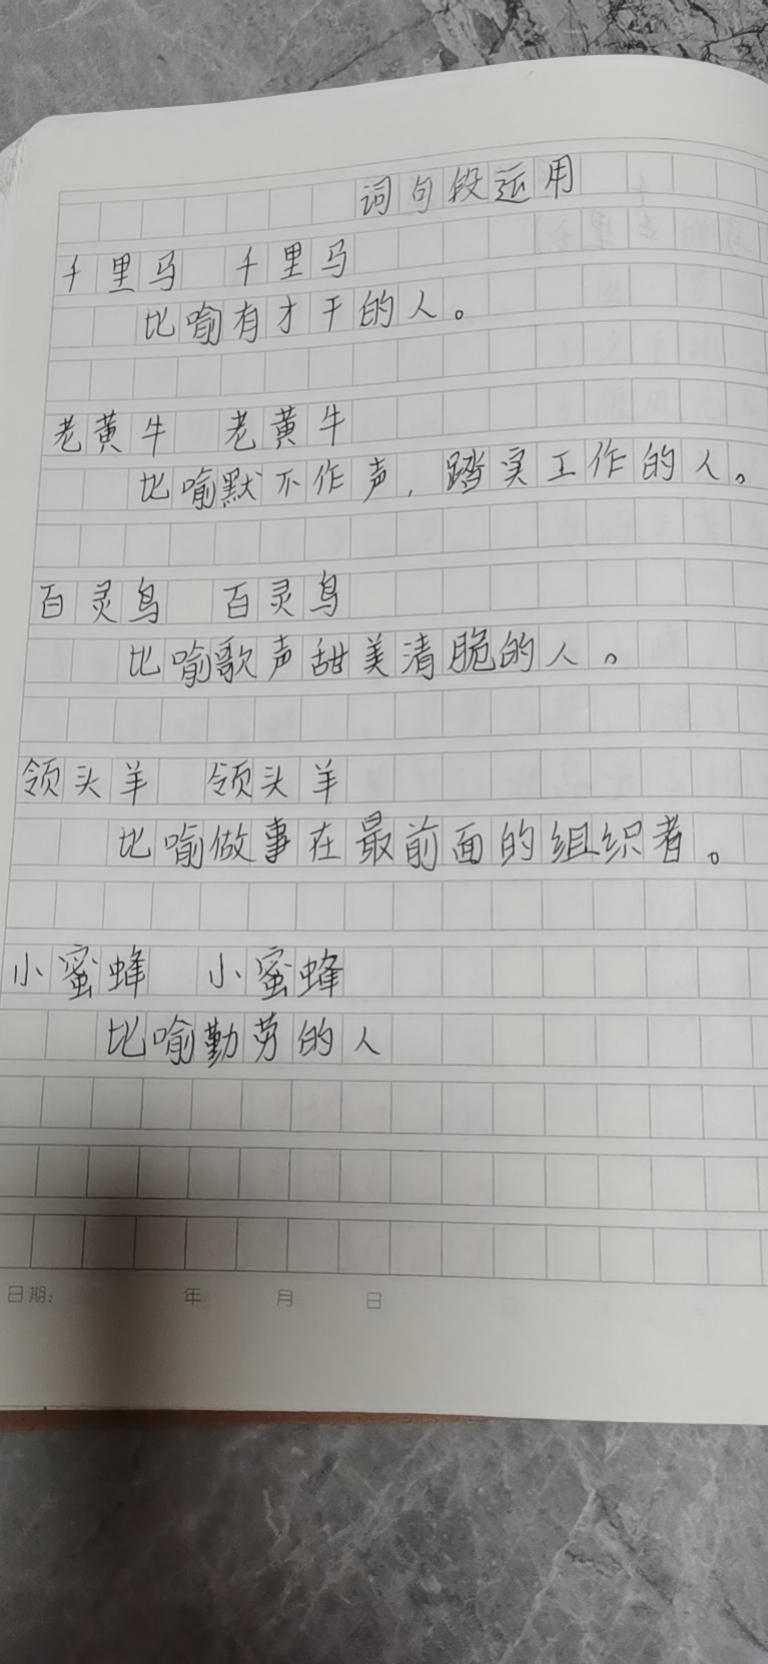 词句段运用
千里马 千里马
比喻有才干的人。
老黄牛 老黄牛
比喻默不作声，踏实工作的人。
百灵鸟 百灵鸟
比喻歌声甜美清脆的人。
领头羊 领头羊
比喻做事在最前面的组织者。
小蜜蜂 小蜜蜂
比喻勤劳的人
日期： 年 月 日